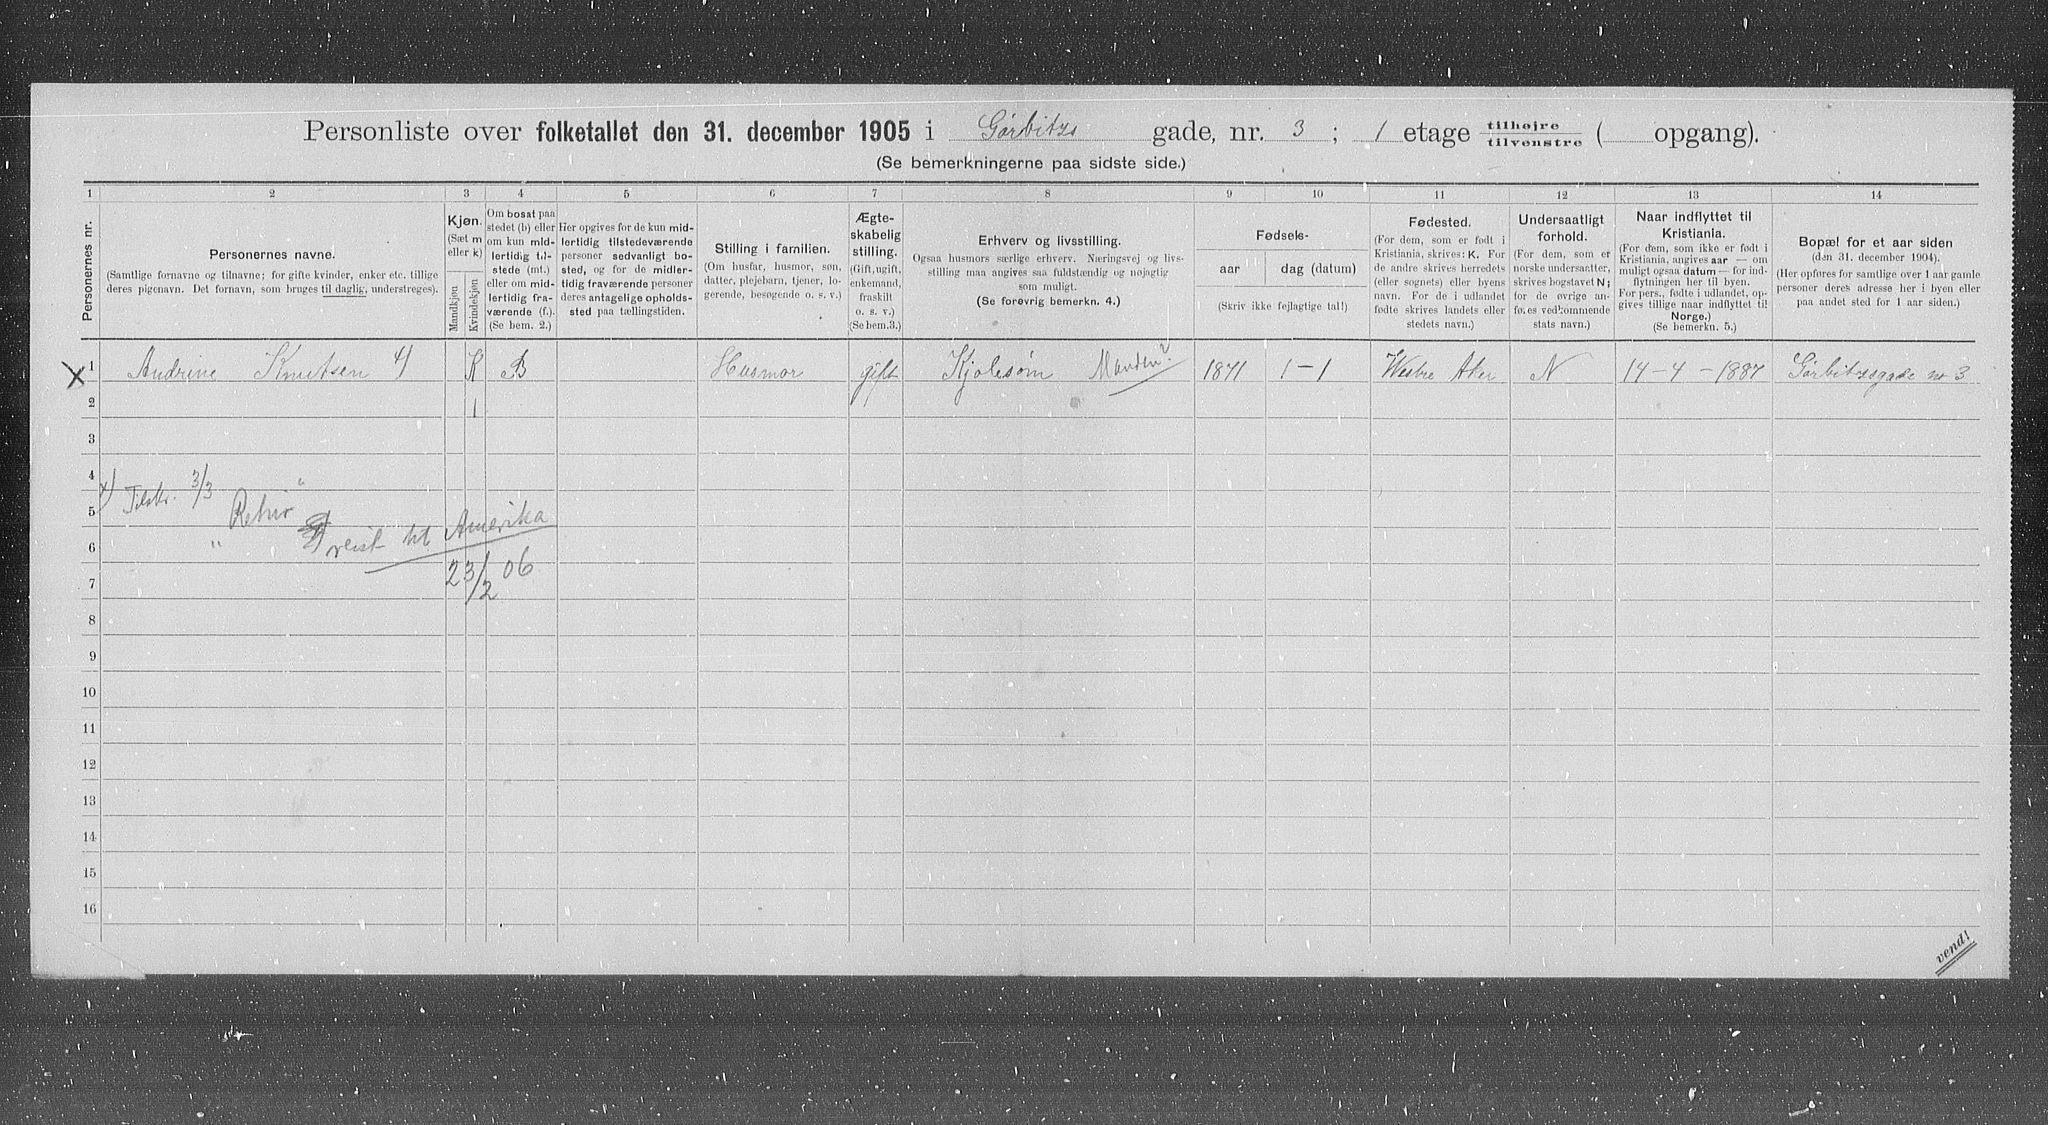 Personliste over folketallet den 31. december 1905 i Gørbitzs gade, nr. 3; 1 etage tilhøjre tilvenstre ( opgang).
(Se bemerkningerne paa sidste side.)
1 2 3 4 5 6 7 8 9 10 11 12 13 14
Personernes nr.
Personernes navne.
(Samtlige fornavne og tilnavne; for gifte kvinder, enker etc. tillige
deres pigenavn. Det fornavn, som bruges til daglig, understreges).
Kjøn.
(Sæt m
eller k)
Mandkjøn
Kvindekjøn
Om bosat paa
stedet (b) eller
om kun mid-
lertidig til-
stede (mt.)
eller om mid-
lertidig fra-
værende (f.).
(Se bem. 2.)
Her opgives for de kun mid-
lertidig tilstedeværende
personer sedvanligt bo-
sted, og for de midler-
tidig fraværende personer
deres antagelige opholds-
sted paa tællingstiden.
Stilling i familien.
(Om husfar, husmor, søn,
datter, plejebarn, tjener, lo-
gerende, besøgende o. s. v.)
Ægte-
skabelig
stilling.
(Gift, ugift,
enkemand,
fraskilt
o. s. v.)
(Se bem.3.)
Erhverv og livsstilling.
Ogsaa husmors særlige erhverv. Næringsvej og livs-
stilling maa angives saa fuldstændig og nøjagtig
som muligt.
(Se forøvrig bemerkn. 4.)
Fødsels-
aar
dag (datum)
(Skriv ikke fejlagtige tal!)
Fødested.
(For dem, som er født i
Kristiania, skrives: K. For
de andre skrives herredets
(eller sognets) eller byens
navn. For de i udlandet
fødte skrives landets eller
stedets navn.)
Undersaatligt
forhold.
(For dem, som er
norske undersaatter,
skrives bogstavet N;
for de øvrige an-
føres vedkommende
stats navn.)
Naar indflyttet til
Kristiania.
(For dem, som ikke er født i
Kristiania, angives aar — om
muligt ogsaa datum — for ind-
flytningen her til byen.
For pers., fødte i udlandet, op-
gives tillige naar indflyttet til
Norge.)
(Se bemerkn. 5.)
Bopæl for et aar siden
(den 31. december 1904).
(Her opføres for samtlige over 1 aar gamle
personer deres adresse her i byen eller
paa andet sted for 1 aar siden.)
X 1 Andrine Knutsen K B Husmor gift Kjolesøm Manden? 1871 1-1 Westre Aker N 14-4-1887 Gørbitzsgade no 3
2 1
3
4
x) Tilskr. 3/3
5 " Retur "
6 reist til Amerika
7 23/2 06
8
9
10
11
12
13
14
15
16
vend!